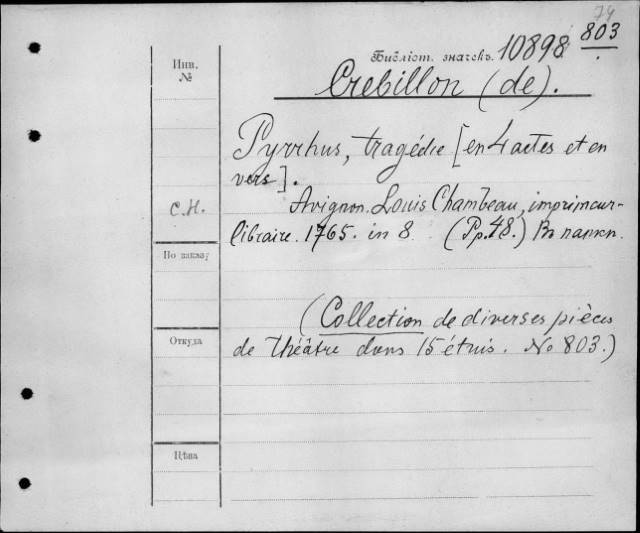 74
Инв.
№
Библіот. значекъ. 10898. 803
Crebillon (de).
Pyrrhus, tragédie [en 4 actes et en
vers].
С.Н.
Avignon. Louis Chambeau, imprimeur-
libraire. 1765. in 8. (Pp. 48.) Въ папкѣ.
По заказу
(Collection de diverses pièces
Откуда
de théâtre dans 15 étuis. No 803.)
Цѣна